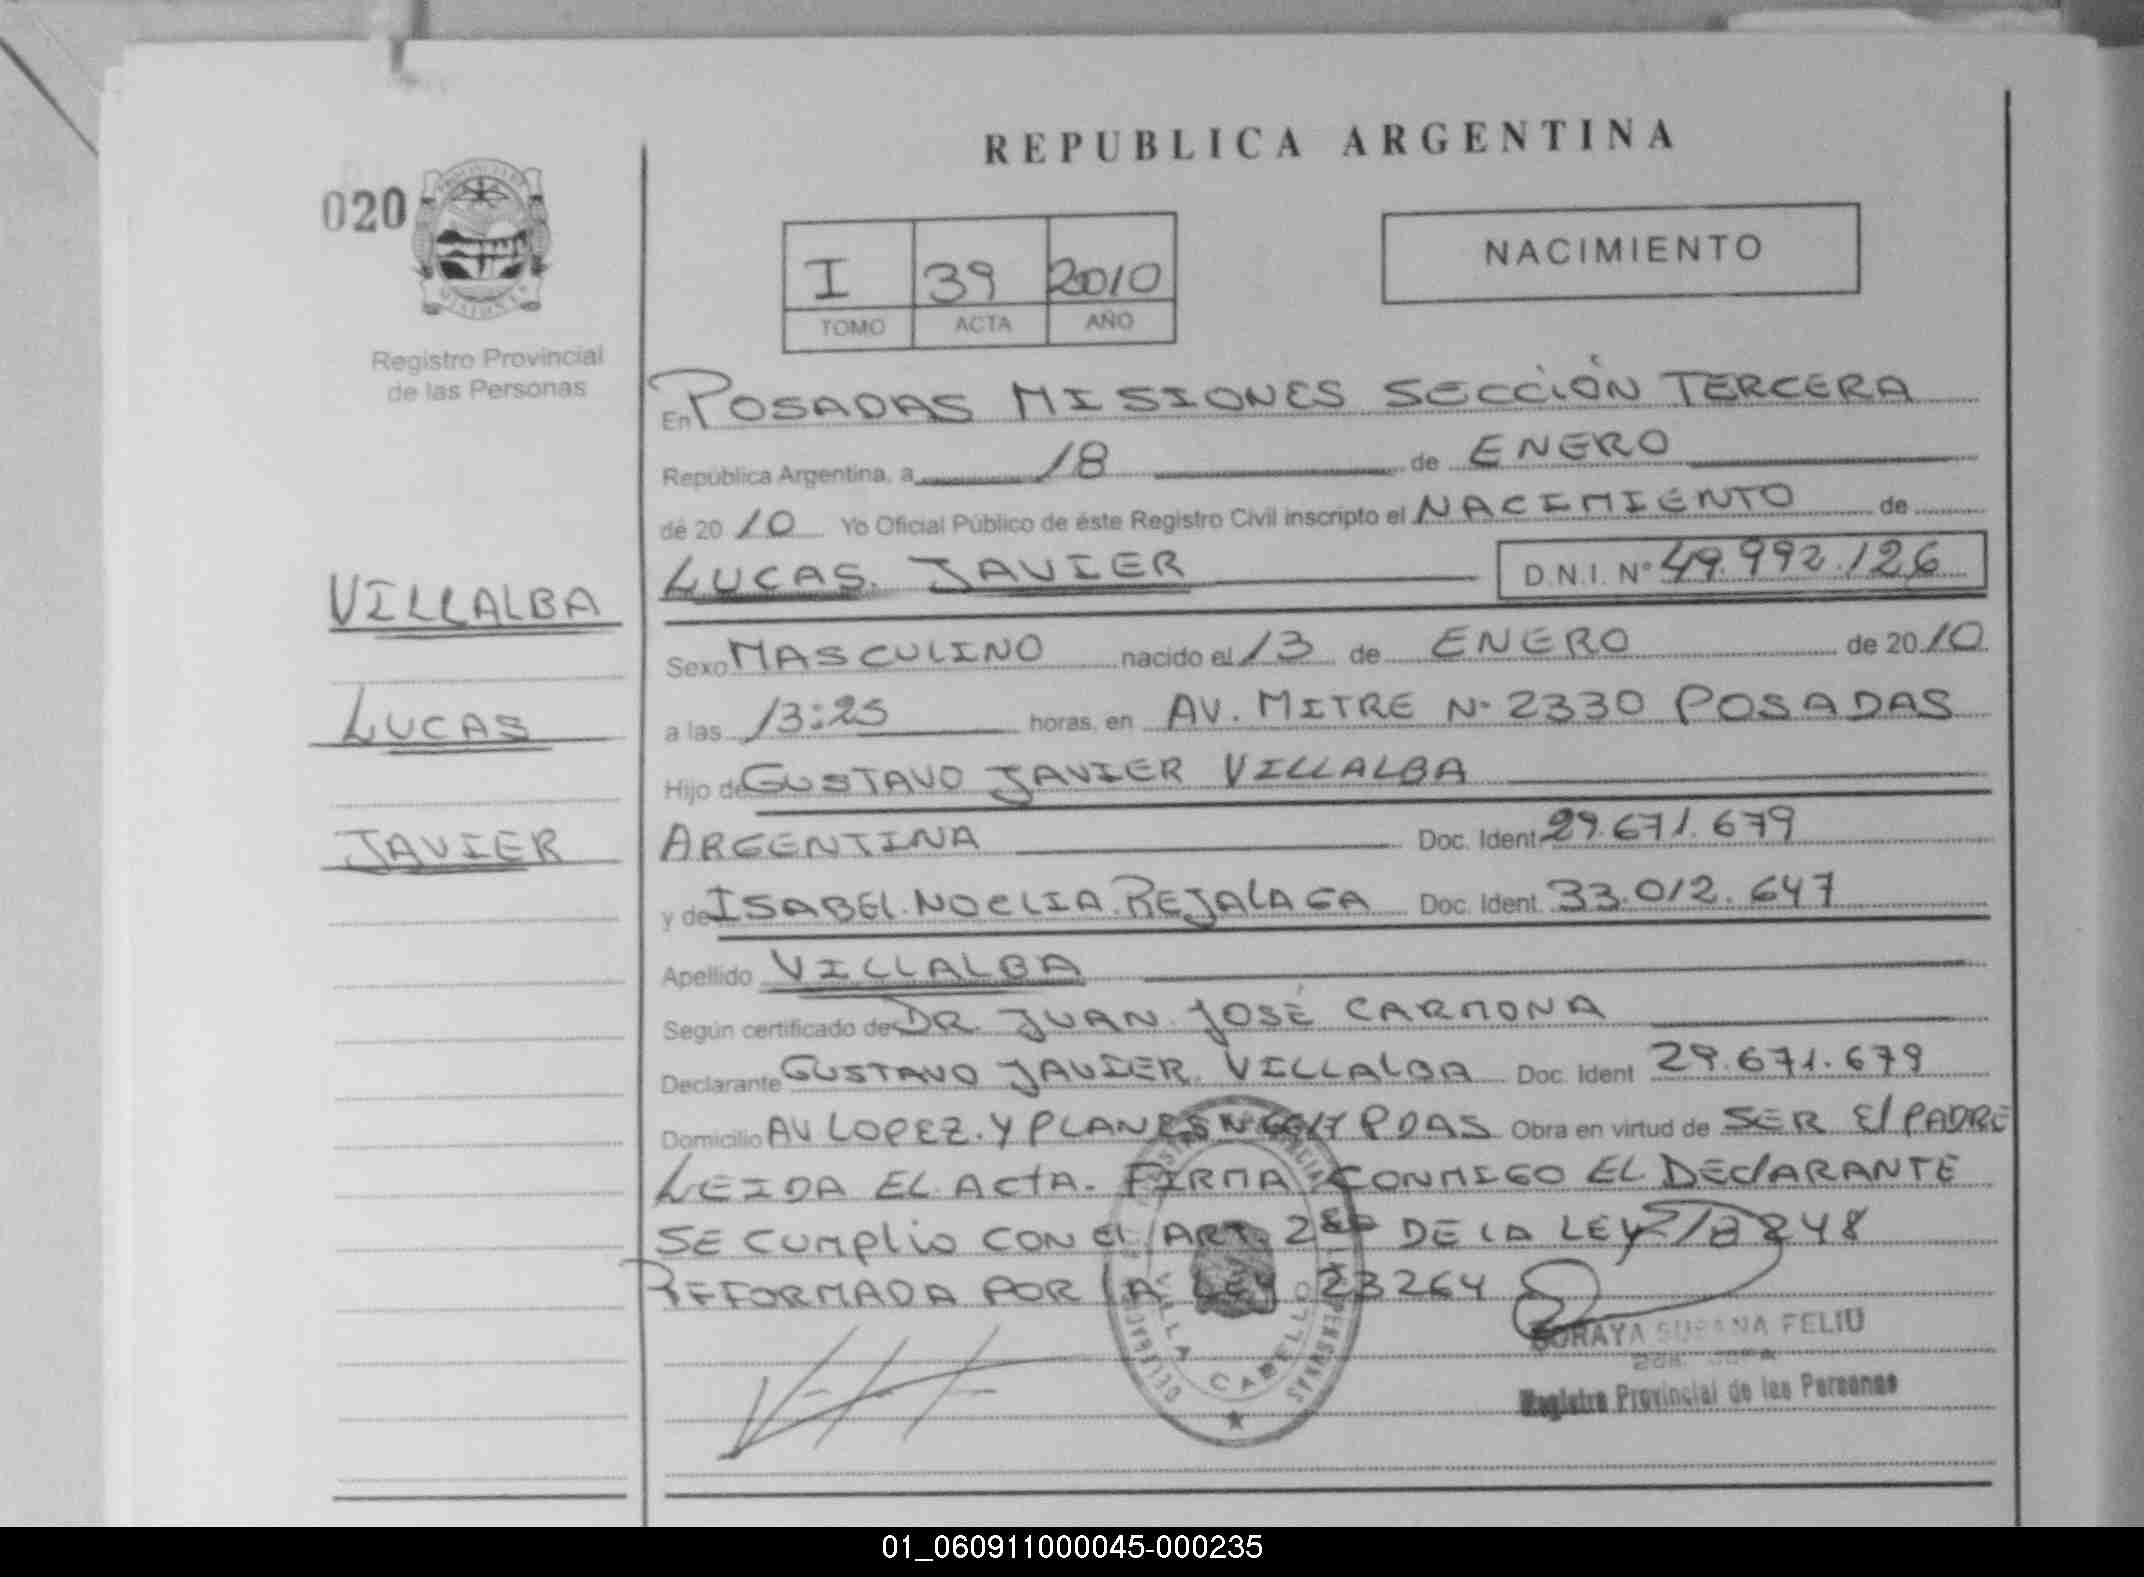 REPUBLICA ARGENTINA
020
I 39 2010
TOMO ACTA AÑO
NACIMIENTO
Registro Provincial
de las Personas
En POSADAS MISIONES SECCIÓN TERCERA
República Argentina, a 18 de ENERO
de 2010 Yo Oficial Público de éste Registro Civil inscripto el NACIMIENTO de
LUCAS JAVIER D.N.I. Nº 49.992.126
VILLALBA
LUCAS
JAVIER
Sexo MASCULINO nacido el 13 de ENERO de 2010
a las 13:25 horas, en AV. MITRE Nº 2330 POSADAS
Hijo de GUSTAVO JAVIER VILLALBA
ARGENTINA Doc. Ident 29.671.679
y de ISABEL NOELIA REJALAGA Doc. Ident. 33.012.647
Apellido VILLALBA
Según certificado de DR. JUAN JOSÉ CARMONA
Declarante GUSTAVO JAVIER VILLALBA Doc. Ident 29.671.679
Domicilio AV LOPEZ Y PLANES Nº PDAS Obra en virtud de SER El PADRE
LEIDA EL ACTA. FIRMA CONMIGO EL DEClARANTE
SE CUMPLIO CON El ART. 2 DE LA LEY 18248
REFORMADA POR LA LEY 23264
SORAYA SUSANA FELIU
Registro Provincial de las Personas
VILLA CABELLO
01_060911000045-000235